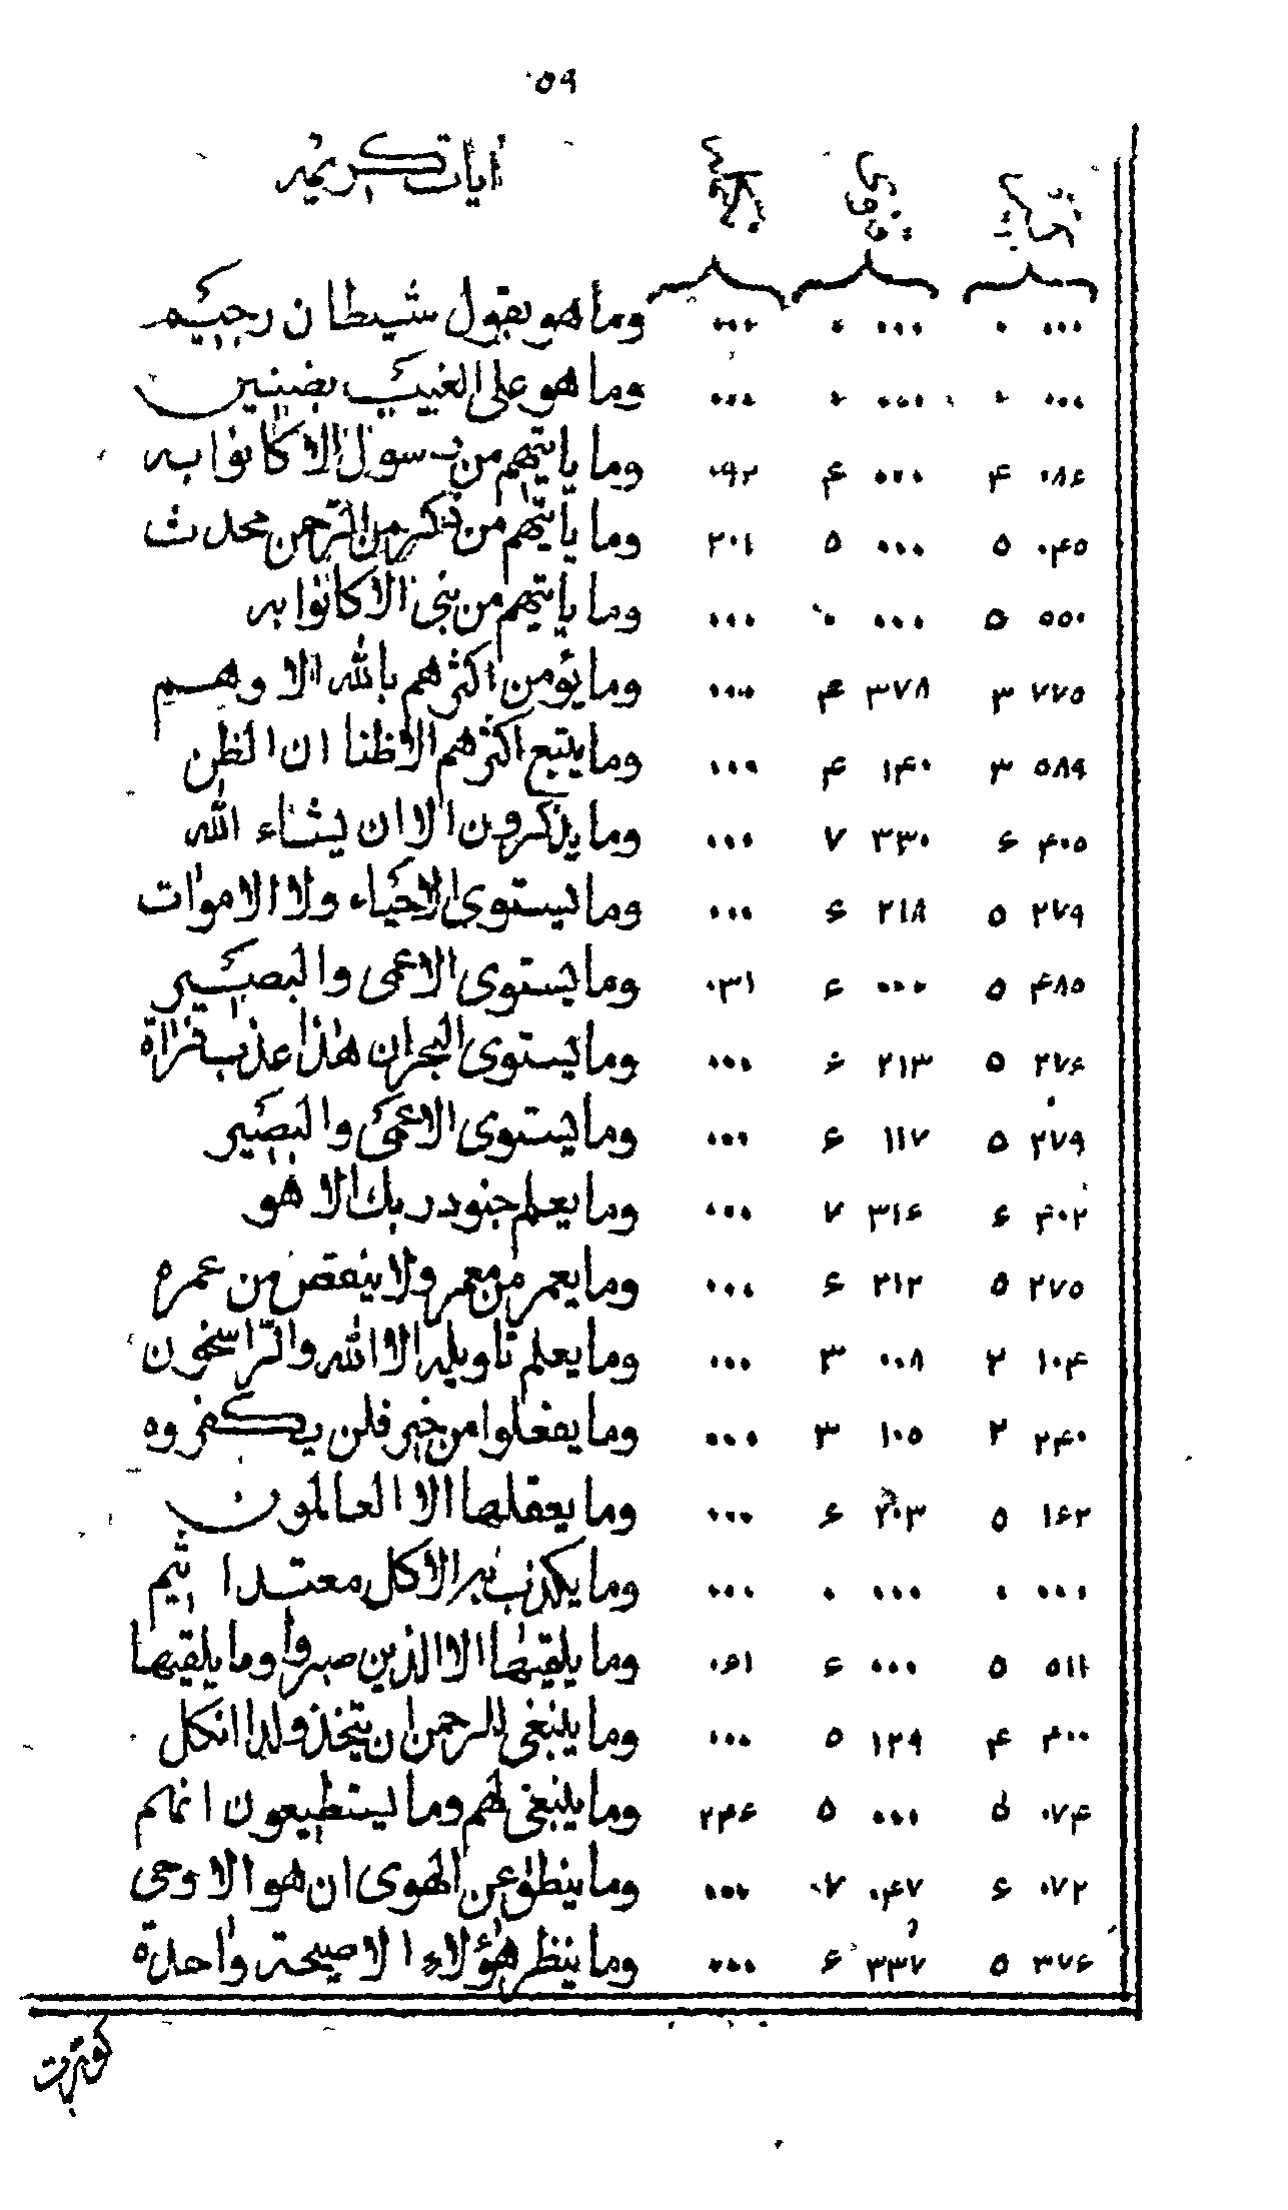 ٥٩
آيات كريمه
٠٠٠ ٠ ٠٠٠ ٠ ٠٠٠ وما هو بقول شيطان رجيم
٠٠٠ ٠ ٠٠٠ ٠ ٠٠٠ وما هو على الغيب بضنين
٠٨۶ ۴ ٠٠٠ ۴ ٠٩٢ وما يأتيهم من رسول الا كانوا به
٠۴٥ ٥ ٠٠٠ ٥ ٢٠١ وما يأتيهم من ذكر من الرحمن محدث
٥٥٠ ٥ ٠٠٠ ٠ ٠٠٠ وما يأتيهم من نبى الا كانوا به
٧٧٥ ٣ ٣٧٨ ۴ ٠٠٠ وما يؤمن اكثرهم بالله الا وهم
٥٨٩ ٣ ١۴٠ ۴ ٠٠٠ وما يتبع اكثرهم الا ظنا ان الظن
۴٠٥ ۶ ٣٣٠ ٧ ٠٠٠ وما يذكرون الا ان يشاء الله
٢٧٩ ٥ ٢١٨ ۶ ٠٠٠ وما يستوى الاحياء ولا الاموات
۴٨٥ ٥ ٠٠٠ ۶ ٠٣١ وما يستوى الاعمى والبصير
٢٧۶ ٥ ٢١٣ ۶ ٠٠٠ وما يستوى البحران هذا عذب فرات
٢٧٩ ٥ ١١٧ ۶ ٠٠٠ وما يستوى الاعمى والبصير
۴٠٢ ۶ ٣١۶ ٧ ٠٠٠ وما يعلم جنود ربك الا هو
٢٧٥ ٥ ٢١٢ ۶ ٠٠٠ وما يعمر من معمر ولا ينقص من عمره
١٠۴ ٢ ٠٠٨ ٣ ٠٠٠ وما يعلم تاويله الا الله والراسخون
٢۴٠ ٢ ١٠٥ ٣ ٠٠٠ وما يفعلوا من خير فلن يكفروه
١۶٢ ٥ ٢٠٣ ۶ ٠٠٠ وما يعقلها الا العالمون
٠٠٠ ٠ ٠٠٠ ٠ ٠٠٠ وما يكذب به الا كل معتد اثيم
٥١١ ٥ ٠٠٠ ۶ ٠۶١ وما يلقيها الا الذين صبروا وما يلقيها
۴٠٠ ۴ ١٢٩ ٥ ٠٠٠ وما ينبغى للرحمن ان يتخذ ولدا ان كل
٠٧۴ ٥ ٠٠٠ ٥ ٢۴۶ وما ينبغى لهم وما يستطيعون انهم
٠٧٢ ۶ ٠۴٧ ٧ ٠٠٠ وما ينطق عن الهوى ان هو الا وحى
٣٧۶ ٥ ٣٣٧ ۶ ٠٠٠ وما ينظر هؤلاء الا صيحة واحدة